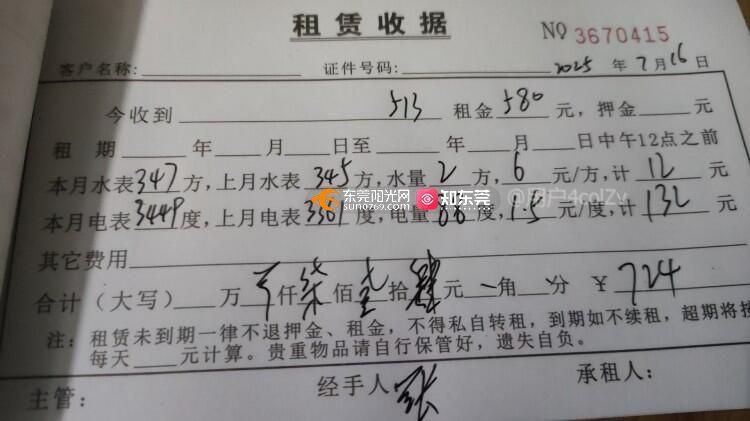 租赁收据 NO 3670415
客户名称： 证件号码： 2025 年 7 月 16 日
今收到 513 租金 580 元，押金 元
租 期 年 月 日至 年 月 日中午12点之前
本月水表 347 方，上月水表 345 方，水量 2 方，6 元/方，计 12 元
本月电表 3449 度，上月电表 3361 度，电量 88 度，1.5 元/度，计 132 元
东莞阳光网 sun0769.com 知东莞 @用户4colZv
其它费用
合计（大写） 万 仟 柒 佰 拾 肆 元 角 分 ￥ 724
注：租赁未到期一律不退押金、租金，不得私自转租，到期如不续租，超期将按
每天 元计算。贵重物品请自行保管好，遗失自负。
主管： 经手人 张 承租人：